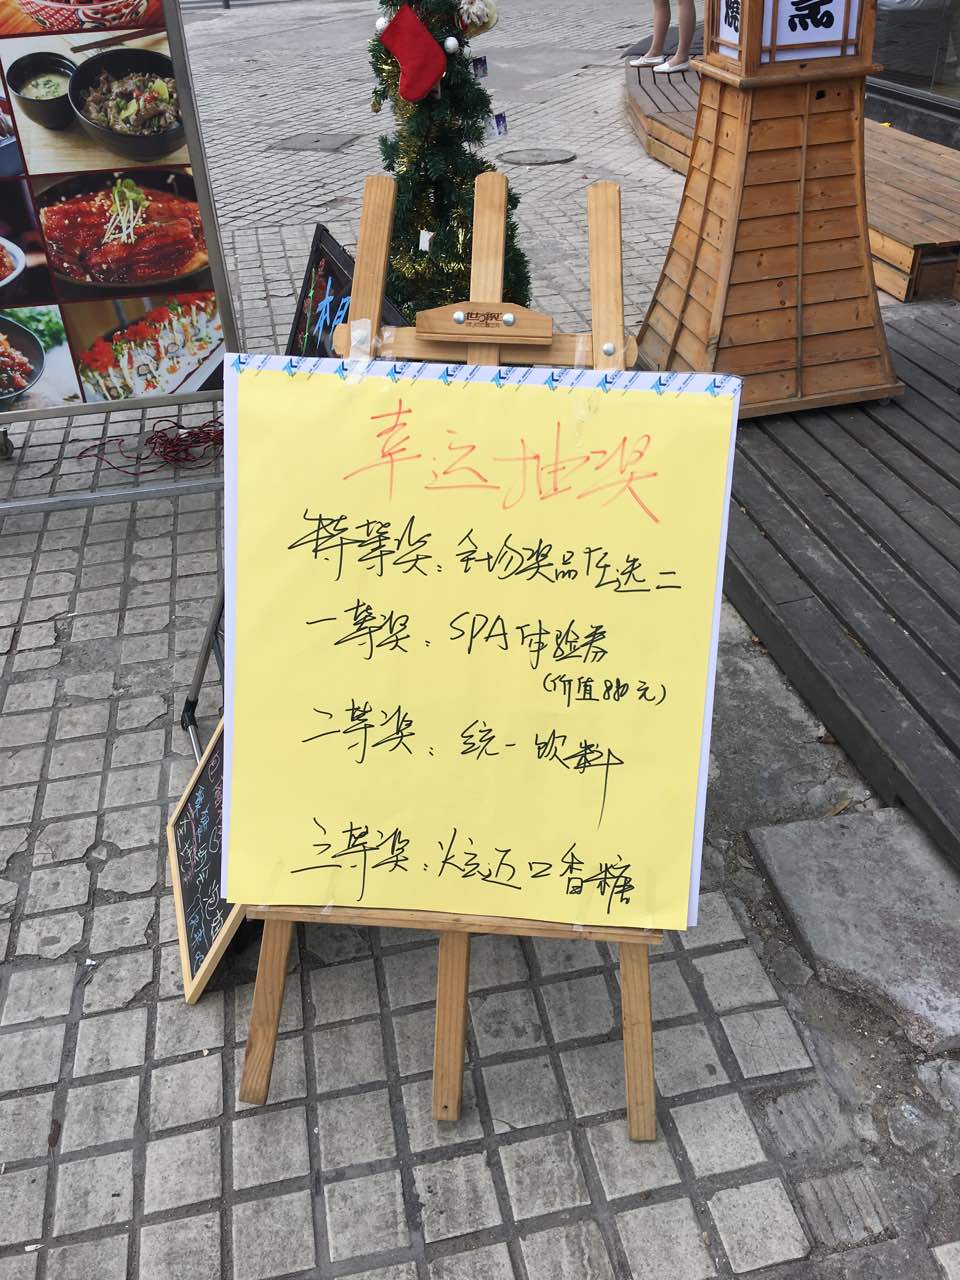 幸运抽奖
特等奖：全场奖品任选二
一等奖：SPA体验券
（价值880元）
二等奖：统一饮料
三等奖：炫迈口香糖